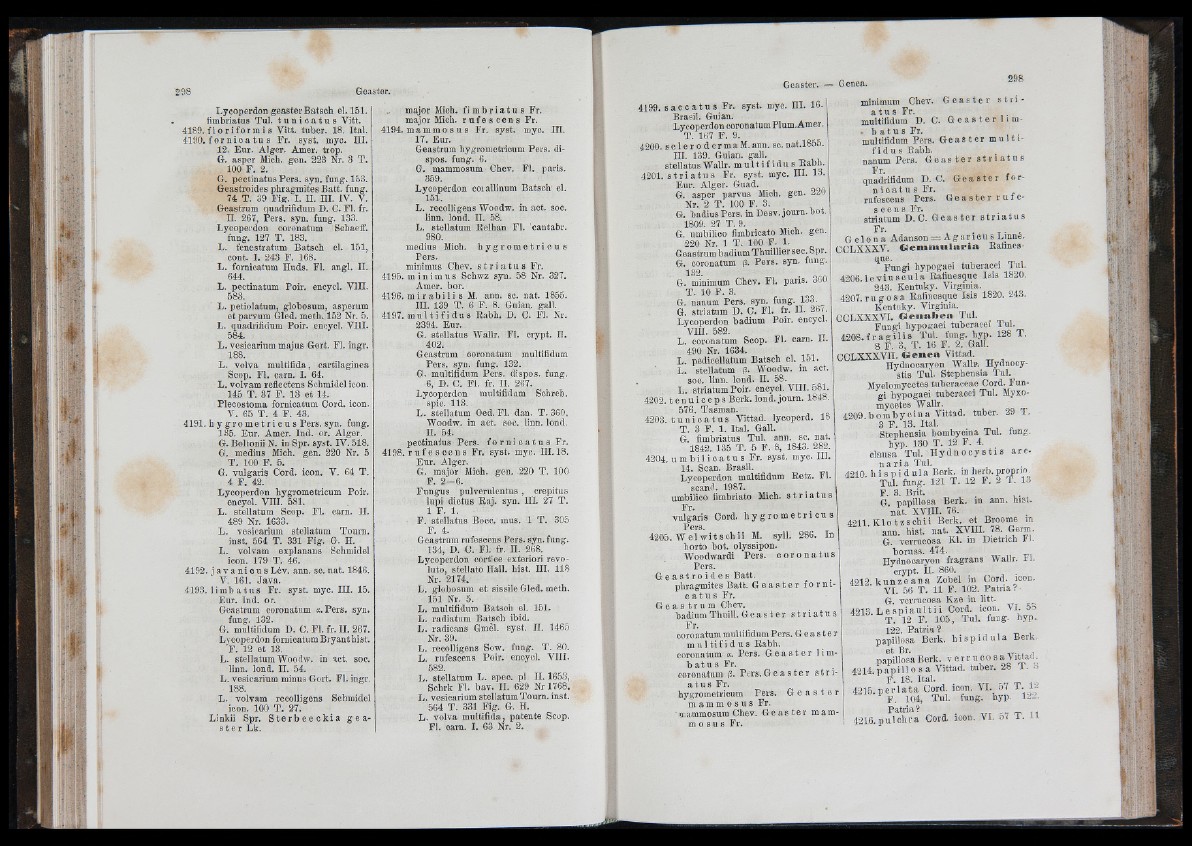 298
Geaster.
Lycoperdon geaster Batsch el. 151.
fimbriatus Tul. tunicatus Vitt.
4189. floriformis Vitt. tuber. 18. Ital.
4190. fornicatus Fr. syst. myc. III.
12. Eur. Alger. Amer. trop.
G. asper Mich. gen. 223 Nr. 3 T.
100 F. 2.
G. pectinatus Pers. syn. fung. 153.
Geastroides phragmites Batt. fung.
74 T. 39 Fig. I. II. III. IV. V.
Geastrum quadrifidum D. C. Fl. fr.
II. 267, Pers. syn. fung. 133.
Lycoperdon coronatum Schaeff.
fung. 127 T. 183.
L. fenestratum Batsch el. 151,
cont. I. 243 F. 168.
L. fornicatum Huds. Fl. angl. II.
644.
L. pectinatum Poir. encycl. VIII.
583.
L. petiolatum, globosum, asperum
et parvum Gled. meth. 152 Nr. 5.
L. quadrifidum Poir. encycl. VIII.
584.
L. vesicarium majus Gort. Fl. ingr.
188.
L. volva multifida, cartilaginea
Scop. Fl. carn. I. 64.
L. volvam reflectens Schmidel icon.
145 T. 37 F. 13 et 14.
Plecostoma fornicatum Cord. icon.
V. 65 T. 4 F. 43.
4191. hygrometricus Pers. syn. fung.
135. Eur. Amer. Ind. or. Alger.
G. Bellonii N. in Spr. syst. IV. 518.
G. medius Mich. gen. 220 Nr. 5
T. 100 F. 5.
G. vulgaris Cord. icon. V. 64 T.
4 F. 42.
Lycoperdon hygrometricum Poir.
encycl. VIII. 581.
L. stellatum Scop. Fl. carn. II.
489 Nr. 1633.
L. vesicarium stellatum Tourn.
inst. 564 T. 331 Fig. G. H.
L. volvam explanans Schmidel
icon. 179 T. 46.
4192. javanicus Lév. ann. sc. nat. 1846.
V. 161. Java.
4193. limbatus Fr. syst. myc. III. 15.
Eur. Ind. or.
Geastrum coronatum α. Pers. syn.
fung. 132.
G. multifidum D. C. Fl. fr. II. 267.
Lycoperdon fornicatum Bryant hist.
F. 12 et 13.
L. stellatum Woodw. in act. soc.
linn. lond. II. 54.
L. vesicarium minus Gort. Fl. ingr.
188.
L. volvam recolligens Schmidel
icon. 100 T. 27.
Linkii Spr. Sterbeeckia gea-
ster Lk.
major Mich. fimbriatus Fr.
major Mich. rufescens Fr.
4194. mammosus Fr. syst. myc. III.
17. Eur.
Geastrum hygrometricum Pers. di-
spos. fung. 6.
G. mammosum Chev. Fl. paris.
359.
Lycoperdon corallinum Batsch el.
151.
L. recolligens Woodw. in act. soc.
linn. lond. II. 58.
L. stellatum Relhan Fl. cantabr.
980.
medius Mich. hygrometricus
Pers.
minimus Chev. striatus Fr.
4195. minimus Schwz syn. 58 Nr. 327.
Amer. bor.
4196. mirabilis M. ann. sc. nat. 1855.
III. 139 T. 6 F. 8. Guian. gall.
4197. multifidus Rabh, D. C. Fl. Nr.
2394. Eur.
G. stellatus Wallr. Fl. crypt. II.
402.
Geastrum coronatum multifidum
Pers. syn. fung. 132.
G. multifidum Pers. dispos. fung.
6, D. C. Fl. fr. II. 267.
Lycoperdon multifidum Schreb.
spic. 113.
L. stellatum Oed. Fl. dan. T. 360,
Woodw. in act. soc. linn. lond.
II. 54.
pectinatus Pers. fornicatus Fr.
4198. rufescens Fr. syst. myc. III. 18.
Eur. Alger.
G. major Mich. gen. 220 T. 100
F. 2—6.
Fungus pulverulentus, crepitus
lupi dictus Raj. syn. III. 27 T.
1 F. 1.
F. stellatus Bocc. mus. 1 T. 305
F. 4.
Geastrum rufescens Pers. syn. fung.
134, D. C. Fl. fr. II. 268.
Lycoperdon cortice exteriori revo-
luto, stellato Hall. hist. III. 118
Nr. 2174.
L. globosum et sissile Gled. meth.
151 Nr. 5.
L. multifidum Batsch el. 151.
L. radiatum Batsch ibid.
L. radicans Gmél. syst. II. 1465
Nr. 39.
L. recolligens Sow. fung. T. 80.
L. rufescens Poir. encycl. VIII.
582.
L. stellatum L. spec. pl. II. 1653,
Schrk Fl. bav. II. 629 Nr 1768.
L. vesicarium stellatum Tourn. inst.
564 T. 331 Fig. G. H.
L. volva multifida, patente Scop.
Fl. carn. I. 63 Nr. 2.
Geaster. — Genea.
298
4199. saccatus Fr. syst. myc. III. 16.
Brasil. Guian.
Lycoperdon coronatum Plum. Amer.
T. 167 F. 9.
4200. scleroderma M. ann. sc. nat. 1855.
III. 139. Guian. gall.
stellatus Wallr. multifidus Rabh.
4201. striatus Fr. syst. myc. III. 13.
Eur. Alger. Guad.
G. asper parvus Mich. gen. 220
Nr. 2 T. 100 F. 3.
G. badius Pers. in Desv. journ. bot.
1809. 27 T. 9.
G. umbilico fimbricato Mich. gen.
220 Nr. 1 T. 100 F. 1.
Geastrum badium Thuillier sec. Spr.
G. coronatum β. Pers. syn. fung.
132.
G. minimum Chev. Fl. paris. 360
T. 10 F. 3.
G. nanum Pers. syn. fung. 133.
G. striatum D. C. Fl. fr. II. 267.
Lycoperdon badium Poir. encycl.
VIII. 582.
L. coronatum Scop. Fl. carn. II.
490 Nr. 1634.
L. pedicellatum Batsch el. 151.
L. stellatum β. Woodw. in act.
soc. linn. lond. II. 58.
L. striatum Poir. encycl. VIII. 581.
4202. tenuiceps Berk. lond. journ. 1848.
576. Tasman.
4203. tunicatus Vittad. lycoperd. 18
T. 3 F. 1. Ital. Gall.
G. fimbriatus Tul. ann. sc. nat.
1842. 135 T. 5 F. 8, 1843. 282.
4204. umbilicatus Fr. syst. myc. III.
14. Scan. Brasil.
Lycoperdon multifidum Retz. Fl.
scand. 1987.
umbilico fimbriato Mich. striatus
Fr.
vulgaris Cord. hygrometricus
Pers.
4205. Welwitschii M. syll. 286. In
horto bot. olyssipon.
Woodwardi Pers. coronatus
Pers.
Geastroides Batt.
phragmites Batt. Geaster forni-
catus Fr.
Geastrum Chev.
badium Thuill. Geaster striatus
Fr.
coronatum multifidum Pers. Geaster
multifidus Rabh.
coronatum α. Pers. Geaster lim-
batus Fr.
coronatum β. Pers. Geaster stri-
atus Fr.
hygrometricum Pers. Geaster
mammosus Fr.
mammosum Chev. Geaster mam-
mosus Fr.
minimum Chev. Geaster stri-
atus Fr.
multifidum D. C. Geaster lim-
batus Fr.
multifidum Pers. Geaster multi-
fidus Rabh.
nanum Pers. Geaster striatus
Fr.
quadrifidum D. C. Geaster for-
nicatus Fr.
rufescens Pers. Geaster rufe-
scens Fr.
striatum D. C. Geaster striatus
Fr.
Gelona Adanson = Agaricus Linné.
CCLXXXV. Gemmularia Rafines-
que.
Fungi hypogaei tuberacei Tul.
4206. leviuscula Rafinesque Isis 1820.
243. Kentuky. Virginia.
4207. rugosa Rafinesque Isis 1820. 243.
Kentuky. Virginia.
CCLXXXVI. Genabea Tul.
Fungi hypogaei tuberacei Tul.
4208. fragilis Tul. fung. hyp. 128 T.
8 F. 3, T. 16 F. 2. Gall.
CCLXXXVII. Genea Vittad.
Hydnocaryon Wallr. Hydnocy-
stis Tul. Stephensia Tul.
Myelomycetes tuberaceae Cord. Fun-
gi hypogaei tuberacei Tul. Myxo-
mycetes Wallr.
4209. bombycina Vittad. tuber. 29 T.
3 F. 13. Ital.
Stephensia bombycina Tul. fung.
hyp. 130 T. 12 F. 4.
clausa Tul. Hydnocystis are-
naria Tul.
4210. hispidula Berk. in herb. proprio
Tul. fung. 121 T. 12 F. 2 T. 13
F. 8. Brit.
G. papillosa Berk. in ann. hist.
nat. XVIII. 76.
4211. Klotzschii Berk. et Broome in
ann. hist. nat. XVIII. 78. Germ.
G. verrucosa Kl. in Dietrich Fl.
boruss. 474.
Hydnocaryon fragrans Wallr. Fl.
crypt. II. 860.
4212. kunzeana Zobel in Cord. icon.
VI. 56 T. 11 F. 102. Patria?
G. verrucosa Kze in litt.
4213. Lespiaultii Cord. icon. VI. 58
T. 12 F. 105, Tul. fung. hyp.
122. Patria?
papillosa Berk. hispidula Berk.
et Br.
papillosa Berk. verrucosa Vittad.
4214. papillosa Vittad. tuber. 28 T. 3
F. 18. Ital.
4215. perlata Cord. icon. VI. 57 T. 12
F. 104, Tul. fung. hyp 122.
Patria?
4216. pulchra Cord. icon. VI. 57 T. 11